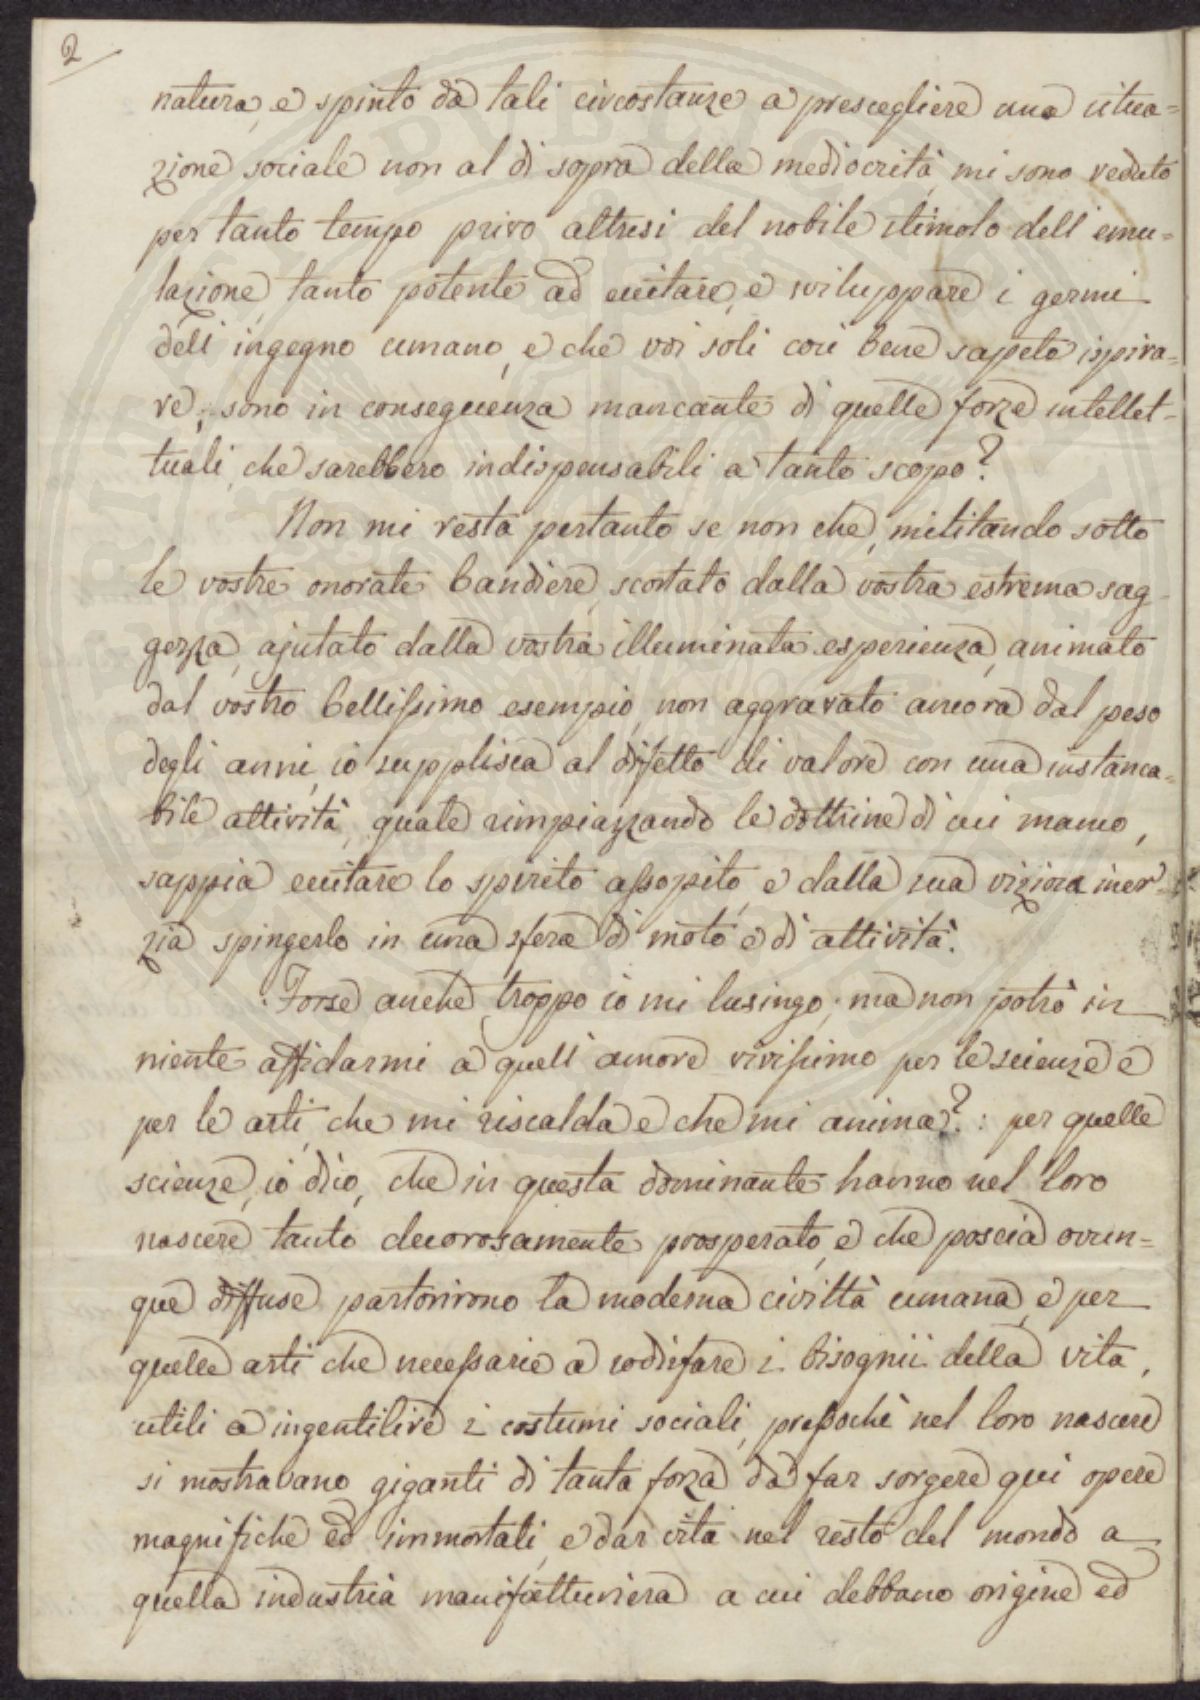 2
natura, e spinto da tali circostanze a prescegliere una situa=
zione sociale non al di sopra della mediocrità, mi sono veduto
per tanto tempo privo altresi del nobile stimolo dell'emu=
lazione, tanto potente ad eccitare, e sviluppare i germi
dell'ingegno umano, e che voi soli così bene sapete ispira=
re; sono in conseguenza mancante di quelle forze intellet=
tuali, che sarebbero indispensabili a tanto scopo?
Non mi resta pertanto se non che, militando sotto
le vostre onorate bandiere, scortato dalla vostra estrema sag-
gezza, ajutato dalla vostra illuminata esperienza, animato
dal vostro bellissimo esempio, non aggravato ancora dal peso
degli anni, io supplisca al difetto di valore con una instanca=
bile attività, quale rimpiazzando le dottrine di cui manco,
sappia eccitare lo spirito assopito, e dalla sua viziosa iner=
zia spingerlo in una sfera di moto e di attività.
Forse anche troppo io mi lusingo; ma non potrò in
niente affidarmi a quell'amore vivissimo per le scienze e
per le arti, che mi riscalda e che mi anima?: per quelle
scienze, io dico, che in questa dominante hanno nel loro
nascere tanto decorosamente prosperato, e che poscia ovun=
que diffuse partorirono la moderna civiltà umana, e per
quelle arti che necessarie a soddisfare i bisognii della vita,
utili a ingentilire i costumi sociali, pressochè nel loro nascere
si mostravano giganti di tanta forza da far sorgere qui opere
magnifiche ed immortali, e dar vita nel resto del mondo a
quella industria manifatturiera a cui debbano origine ed
PUBLIC